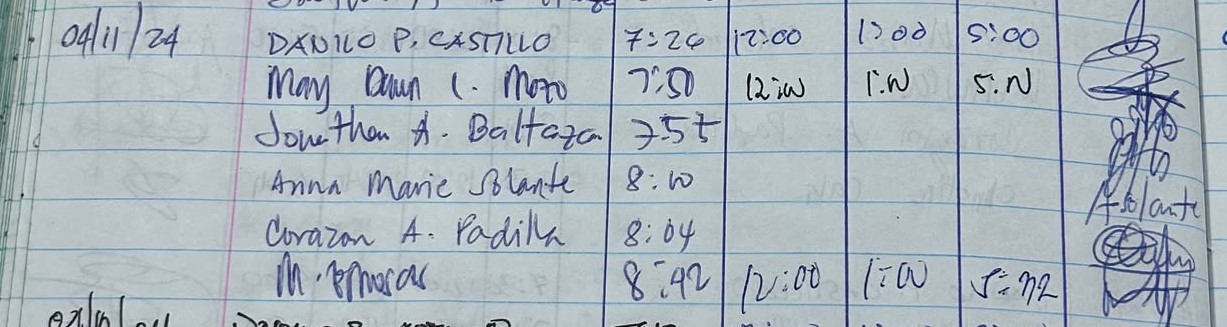 04/11/24 DANILO P. CASTILLO 7:26 12:00 1:00 5:00
May Dawn C. Mozo 7:50 12:00 1:00 5:00
Jonathan A. Baltaza 7:55
Anna Marie Solante 8:10
Corazon A. Padilla 8:04 
M. 8:42 12:00 1:00 5:32
ASolante